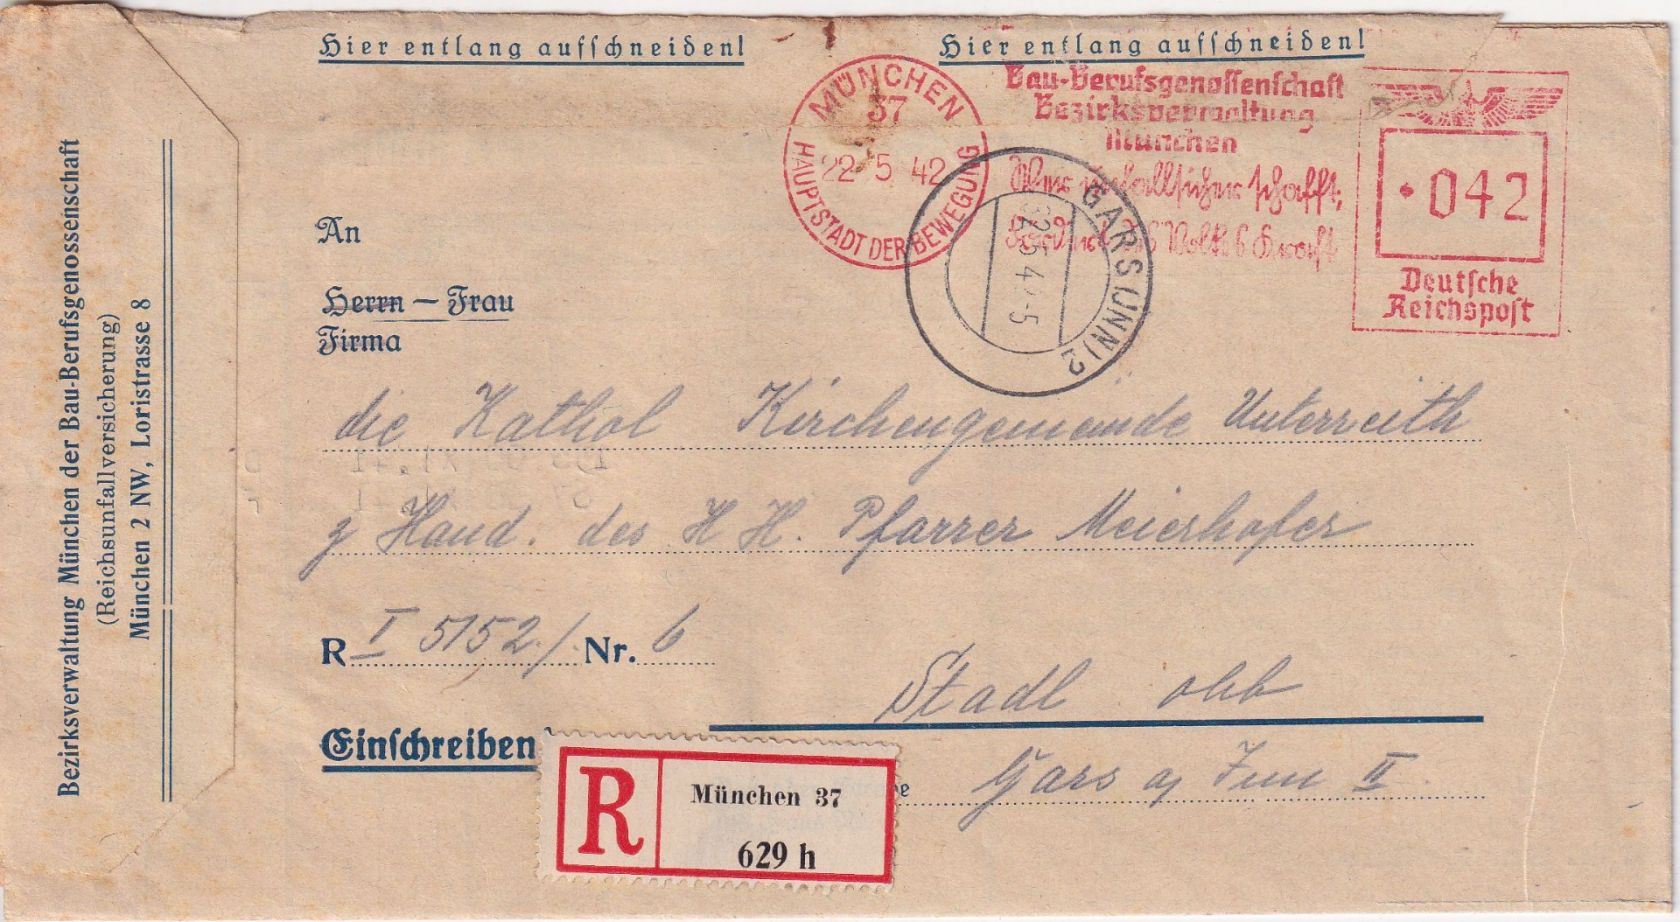 Hier entlang aufschneiden!
Hier entlang aufschneiden!
Bezirksverwaltung München der Bau-Berufsgenossenschaft
(Reichsunfallversicherung)
München 2 NW, Loristrasse 8
MÜNCHEN
37
22-5 42
HAUPTSTADT DER BEWEGUNG
Bau-Berufsgenossenschaft
Bezirksverwaltung
München
Wer unfallsicher schafft,
des Volkes Kraft
042
Deutsche
Reichspost
GARS (INN) 2
An
Herrn – Frau
Firma
die Kathol Kirchengemeinde Unterreith
z Hand. des H H. Pfarrer Meierhofer
R I 5152/. Nr. 6
Stadl obb
Einschreiben
Gars a/ Inn II
R
München 37
629 h